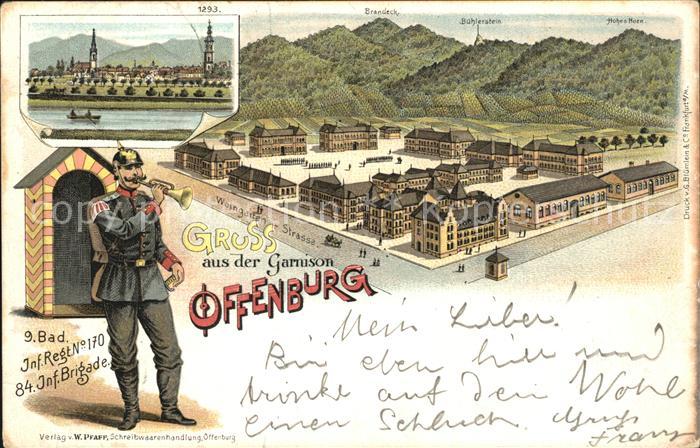 1293.
Brandeck.
Bühlerstein
Hohes Horn.
Weingarten Strasse
GRUSS
aus der Garnison
OFFENBURG
9. Bad.
Inf. Regt. No. 170
84. Inf. Brigade.
Mein Lieber!
Bin eben hier und
trinke auf dein Wohl
einen Schluck. Gruß
Franz
Verlag v. W. PFAFF, Schreibwaarenhandlung, Offenburg
Druck v. G. Blümlein & Co. Frankfurt a/M.